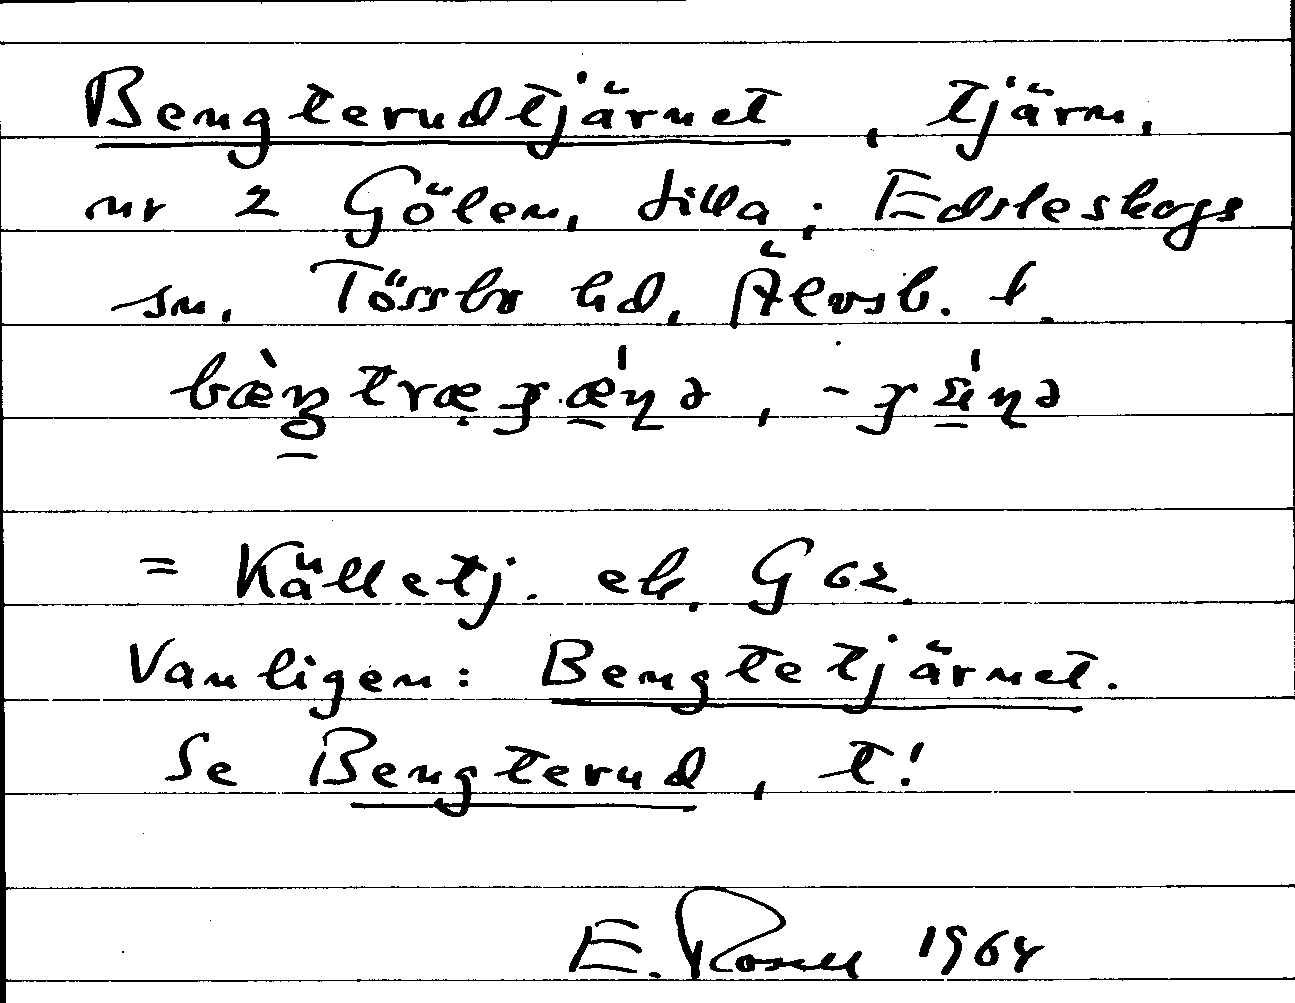 Bengterudtjärnet, tjärn,
nr 2 Gölen, tilla; Edsleskogs
sn, Tössbo hd, Älvsb. l.
= Källetj. ek, G 62.
Vanligen: Bengtetjärnet.
Se Bengterud, t!
E. Rosell 1964